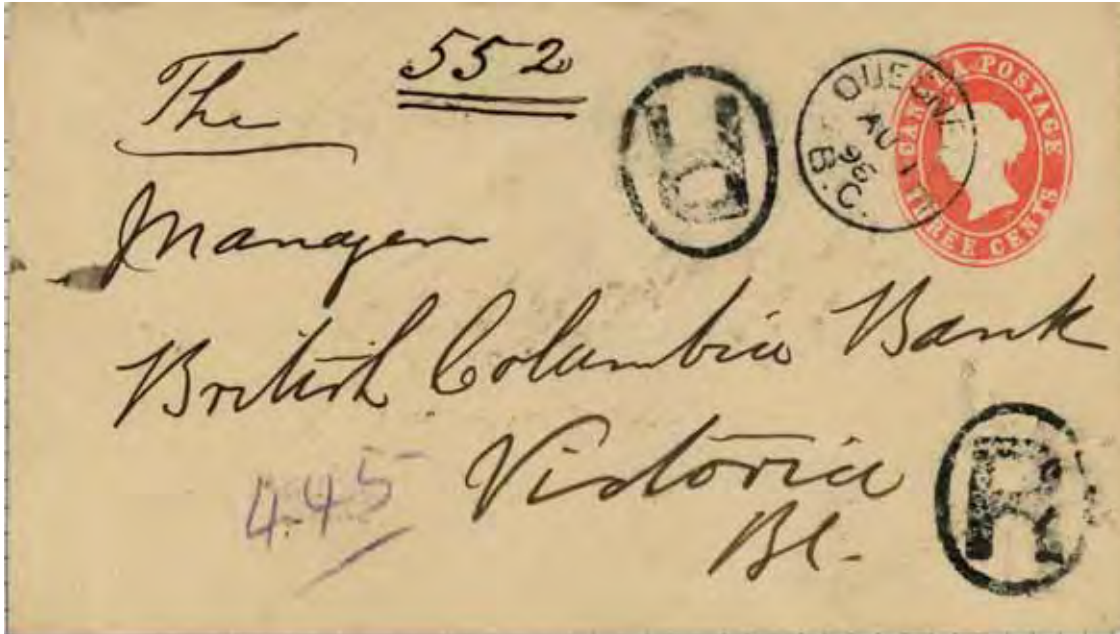 The 552
Manager
British Columbia Bank
Victoria
BC-
445
R
R
QUESNE
AU 1
96
B.C.
CANADA POSTAGE
THREE CENTS